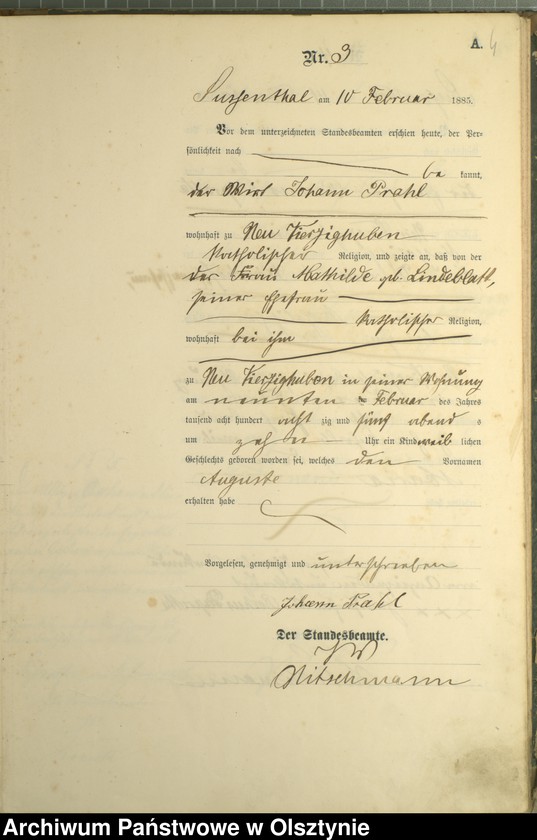 A.
Nr. 3
Sussenthal am 10 Februar 1885.
Vor dem unterzeichneten Standesbeamten erschien heute, der Per-
sönlichkeit nach
be kannt,
der Wirt Johann Prahl
wohnhaft zu Neu Vierzighuben
katholischer Religion, und zeigte an, daß von der
der Frau Mathilde geb. Lindeblatt,
seiner Ehefrau
katholischer Religion,
wohnhaft bei ihm
zu Neu Vierzighuben in seiner Wohnung
am neunten Februar des Jahres
tausend acht hundert acht zig und fünf abend s
um zehn Uhr ein Kind weib lichen
Geschlechts geboren worden sei, welches den Vornamen
Auguste
erhalten habe
Vorgelesen, genehmigt und unterschrieben
Johann Prahl
Der Standesbeamte.
Nitschmann
Archiwum Państwowe w Olsztynie